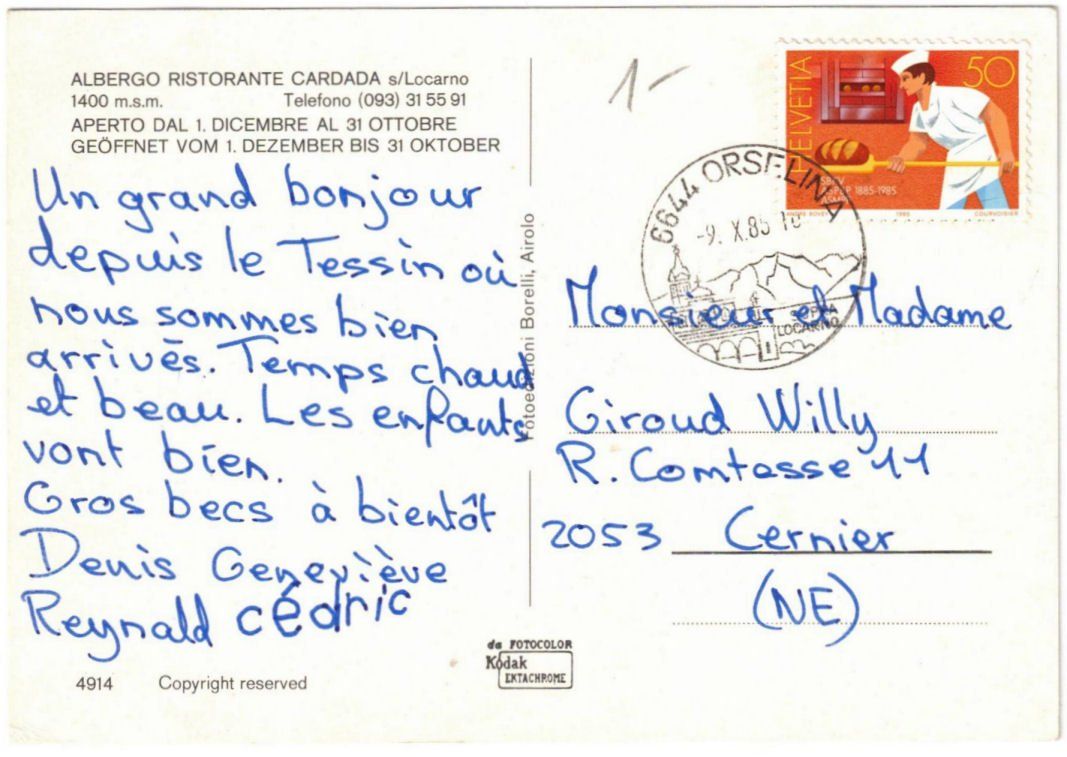 ALBERGO RISTORANTE CARDADA s/Locarno
1400 m.s.m. Telefono (093) 31 55 91
APERTO DAL 1. DICEMBRE AL 31 OTTOBRE
GEÖFFNET VOM 1. DEZEMBER BIS 31 OKTOBER
Un grand bonjour
depuis le Tessin où
nous sommes bien
arrivés. Temps chaud
et beau. Les enfants
vont bien.
Gros becs à bientôt
Denis Geneviève
Reynald cédric
4914 Copyright reserved
Fotoedizioni Borelli, Airolo
da FOTOCOLOR
Kodak
EKTACHROME
1-
HELVETIA
50
1885-1985
1985
COURVOISIER
6644 ORSELINA
-9. X.85
SOPRA
LOCARNO
Monsieur et Madame
Giroud Willy
R. Comtesse 11
2053 Cernier
(NE)